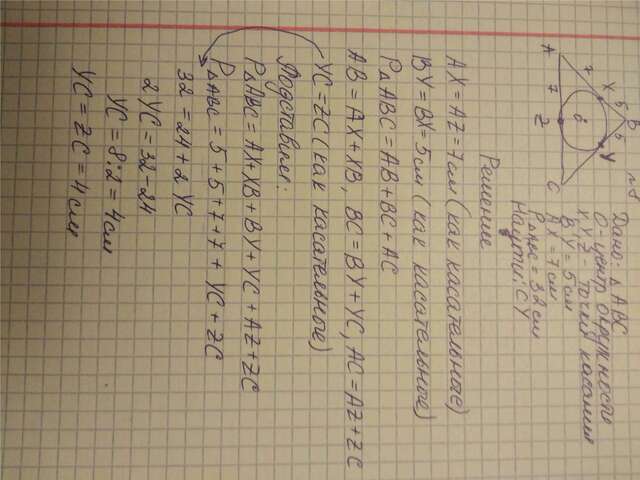 №8
Дано: △ABC
O - центр окружности
X, Y, Z - точки касания
BY = 5 см
AX = 7 см
P△ABC = 32 см
Найти: CY
A 7 X 5 B 5 Y C Z 7
Решение
AX = AZ = 7 см (как касательные)
BY = BX = 5 см (как касательные)
P△ABC = AB + BC + AC
AB = AX + XB, BC = BY + YC, AC = AZ + ZC
YC = ZC (как касательные)
Подставим:
P△ABC = AX XB + BY + YC + AZ + ZC
P△ABC = 5 + 5 + 7 + 7 + YC + ZC
32 = 24 + 2 YC
2YC = 32 - 24
YC = 8 : 2 = 4 см
YC = ZC = 4 см